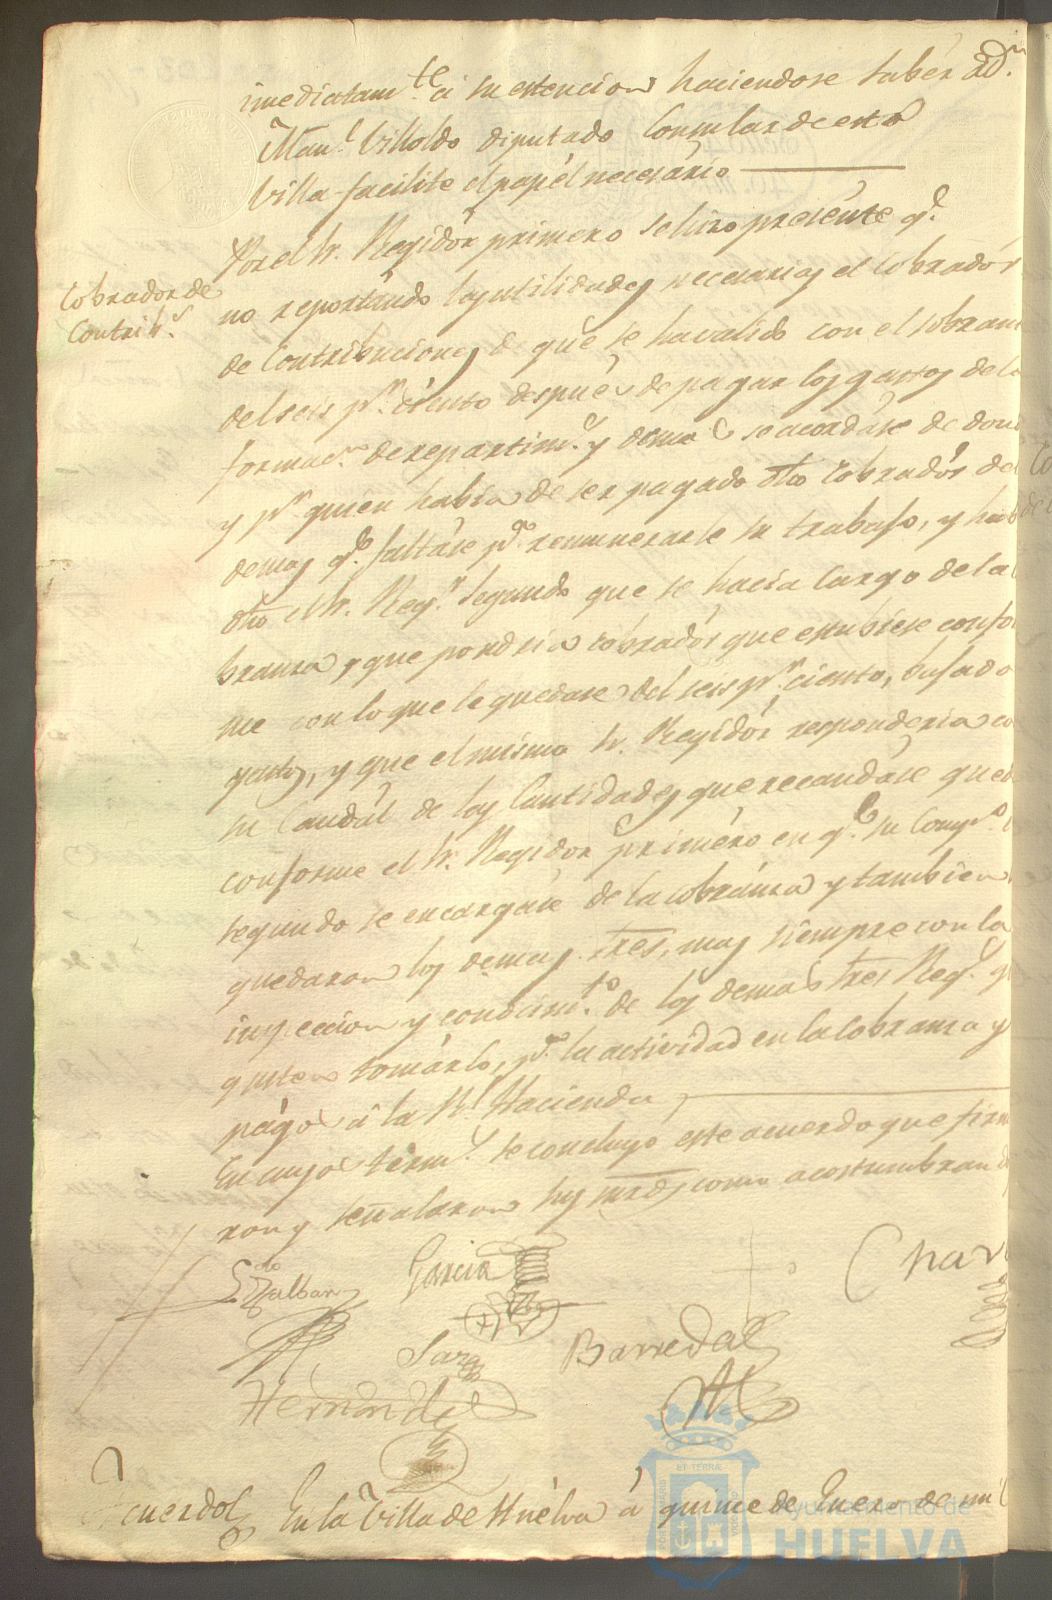 imediatam.te á su estencion haciendose saber a D.n
Man.l Villoldo diputado Consular de esta
Villa facilite el papél necesário
Por el Sr. Regidór primero se hizo presénte q.e
Cobrador de
Contrib.s
no reportándo las utilidades necesarias el Cobradór
de Contribuciones de que se ha valido con el sobran
del seis p.r ciento despues de pagar los gastos de la
formac.n de repartim.s y demas se acordáse de don
y p.r quien habia de ser pagado dho cobradór de
demas q.e faltáse p.a remunerarle su trabajo, y hab
dho el Sr. Reg.r segundo que se hacia cargo de la
branza y que pondria cobradór que estubiese confor
me con lo que le quedase del seis p.r ciento, bajado
gastos, y que el mismo Sr. Regidór responderia co
su Caudál de las Cantidades que recaudáse qued
conforme el Sr. Regidor primero en q.e su Comp.o
segundo se encargáse de la cobránza y tambien
quedaron los demas tres, mas siempre con la
inspeccion y conocim.to de los demas tres Reg.s q
gusten tomárlo, p.a la actividad en la Cobranza y
págo á la R.l Hacienda
En cuyos térm.s se concluyó este acuerdo que firm
ron y señalaron sus mrds como acostumbran
Garcia
Char
Barreda
Hernandez
Acuerdo
En la Villa de Huélva á quinze de Enero de mil
ET TERRÆ
Ayuntamiento de
HUELVA